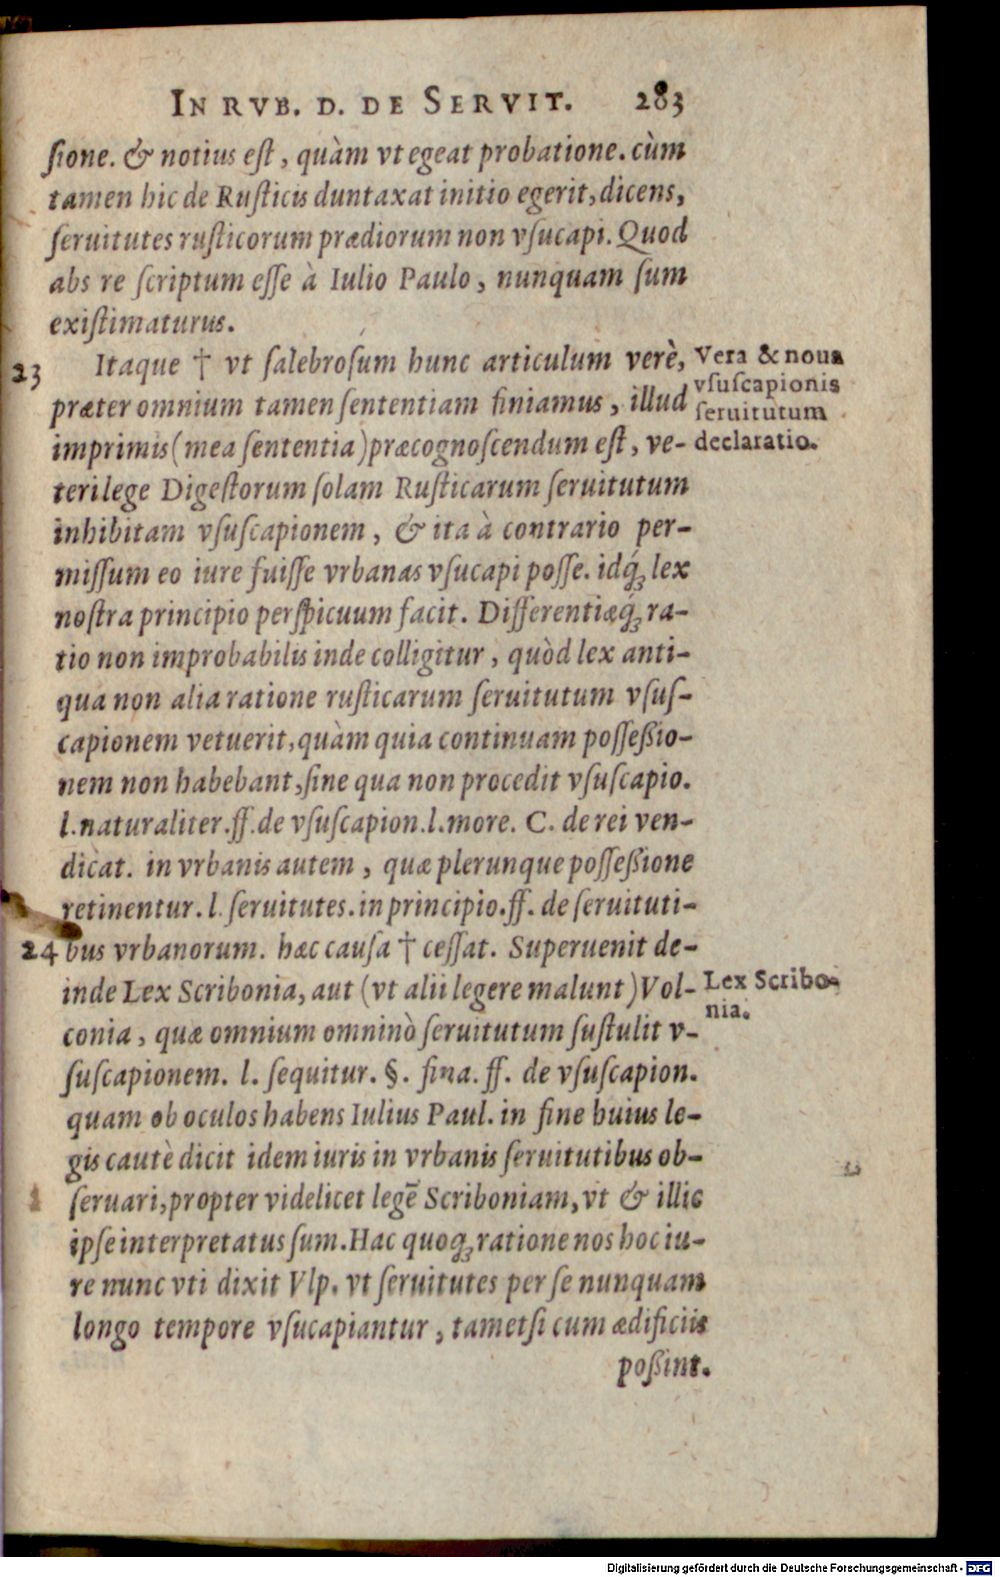 IN RVB. D. DE SERVIT. 283
ſione. & notius eſt, quàm vt egeat probatione. cùm
tamen hic de Ruſticis duntaxat initio egerit, dicens,
ſeruitutes ruſticorum prædiorum non vſucapi. Quod
abs re ſcriptum eſſe à Iulio Paulo, nunquam ſum
exiſtimaturus.
23 Itaque † vt ſalebroſum hunc articulum verè,
præter omnium tamen ſententiam finiamus, illud
imprimis (mea ſententia) præcognoſcendum eſt, ve-
teri lege Digeſtorum ſolam Ruſticarum ſeruitutum
inhibitam vſuſcapionem, & ita à contrario per-
miſſum eo iure fuiſſe vrbanas vſucapi poſſe. idq́ꝫ lex
noſtra principio perſpicuum facit. Differentiæq́ꝫ ra-
tio non improbabilis inde colligitur, quòd lex anti-
qua non alia ratione ruſticarum ſeruitutum vſuſ-
capionem vetuerit, quàm quia continuam poſſeßio-
nem non habebant, ſine qua non procedit vſuſcapio.
l. naturaliter. ff. de vſuſcapion. l. more. C. de rei ven-
dicat. in vrbanis autem, quæ plerunque poſſeßione
retinentur. l. ſeruitutes. in principio. ff. de ſeruituti-
24 bus vrbanorum. hæc cauſa † ceſſat. Superuenit de-
inde Lex Scribonia, aut (vt alii legere malunt) Vol-
conia, quæ omnium omninò ſeruitutum ſuſtulit v-
ſuſcapionem. l. ſequitur. §. fina. ff. de vſuſcapion.
quam ob oculos habens Iulius Paul. in fine huius le-
gis cautè dicit idem iuris in vrbanis ſeruitutibus ob-
ſeruari, propter videlicet legē Scriboniam, vt & illic
ipſe interpretatus ſum. Hac quoqꝫ ratione nos hoc iu-
re nunc vti dixit Vlp. vt ſeruitutes per ſe nunquam
longo tempore vſucapiantur, tametſi cum ædificiis
poßint.
Vera & noua
vſuſcapionis
ſeruitutum
declaratio.
Lex Scribo-
nia.
Digitalisierung gefördert durch die Deutsche Forschungsgemeinschaft - DFG